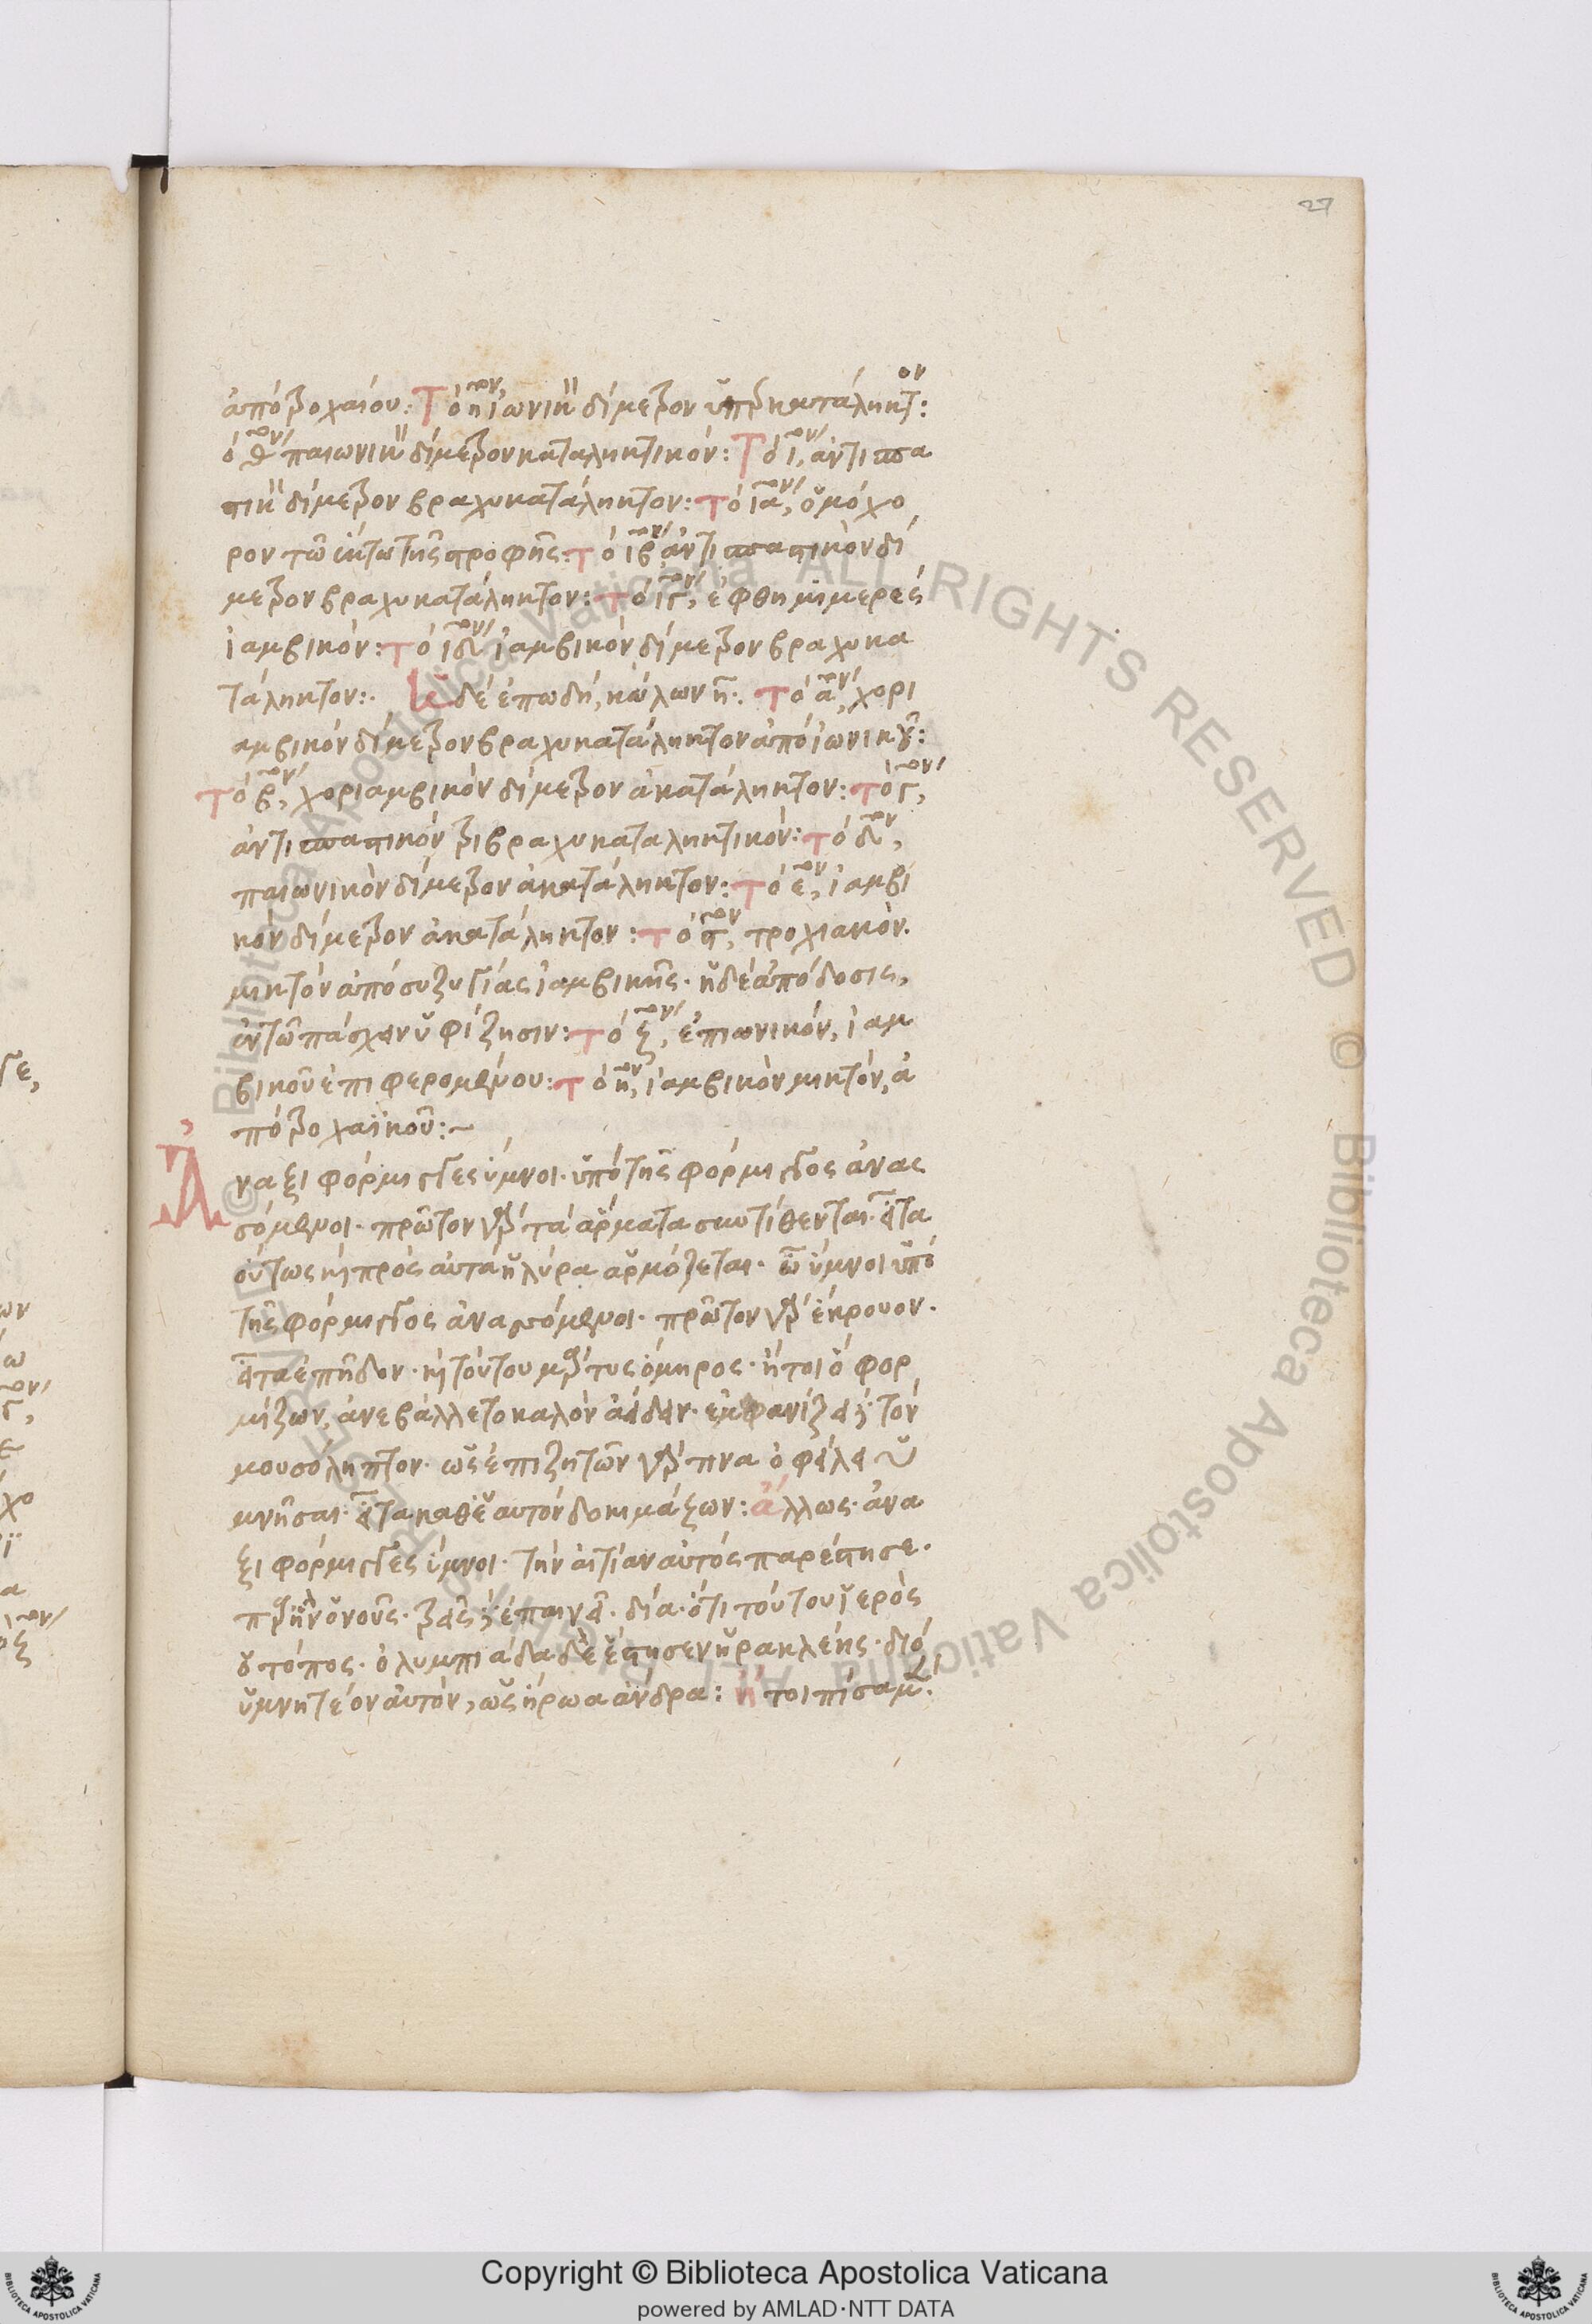 27
ἀπὸ τροχαίου: Τὸ η^ον, ἰωνικὸν δίμετρον ὑπερκατάληκτον:
ὁ θ^ον παιωνικὸν δίμετρον καταληκτικόν: Τὸ ι^ον, ἀντισπα
στικὸν δίμετρον βραχυκατάληκτον: τὸ ια^ον, ὁμόχο
ρον τῶ ἕκτω τῆς στροφῆς: τὸ ιβ^ον, ἀντισπαστικὸν δί
μετρον βραχυκατάληκτον: τὸ ιγ^ον, ἐφθημιμερὲς
ἰαμβικόν: τὸ ιδ^ον ἰαμβικὸν δίμετρον βραχυκα
τάληκτον: δὲ ἐπωδή, κώλων η: τὸ α^ον, χορι
αμβικὸν δίμετρον βραχυκατάληκτον ἀπὸ ἰωνικοῦ:
τὸ β^ον, χοριαμβικὸν δίμετρον ἀκατάληκτον: τὸ γ^ον,
ἀντισπαστικὸν τριβραχυκαταληκτικόν: τὸ δ^ον,
παιωνικὸν δίμετρον ἀκατάληκτον: τὸ ε^ον, ἰαμβι
κὸν δίμετρον ἀκατάληκτον: τὸ ϛ^ον, τροχιακὸν.
μικτὸν ἀπὸ συζυγίας ἰαμβικῆς. ἡ δὲ ἀπόδοσις,
ἐν τῶ πάσχειν ὑφίζησιν: τὸ ζ^ον, ἐπιωνικόν, ἰαμ
βικοῦ ἐπιφερομένου: τὸ η^ον, ἰαμβικὸν μικτὸν, ἀ
πὸ τροχαϊκοῦ:~
Ἀναξιφόρμιγγες ὕμνοι. ὑπὸ τῆς φόρμιγγος ἀνας
σόμενοι. πρῶτον γὰρ τὰ ἅρματα συντίθενται. εἶτα
οὕτως καὶ πρὸς αὐτὰ ἡ λύρα ἁρμόζεται. ὦ ὕμνοι ὑπὸ
τῆς φόρμιγγος ἀνασσόμενοι. πρῶτον γὰρ ἔκρουον.
εἶτα ἐπῆδον. καὶ τούτου μάρτυς ὅμηρος. ἤτοι ὁ φορ
μίζων, ἀνεβάλλετο καλὸν ἀείδειν. ἐμφανίζει τὸν
μουσόληπτον. ὡς ἐπιζητῶν γὰρ τινα ὀφείλει ὑ
μνῆσαι. εἶτα καθ' ἑαυτὸν δοκιμάζων: ἄλλως. ἀνα
ξιφόρμιγγες ὕμνοι. τὴν αἰτίαν αὐτὸς παρέστησε.
ὁ νοῦς. τρεῖς ἐπαινεῖ. δία. ὅτι τούτου ἱερὸς
ὁ τόπος. ὀλυμπιάδα δὲ ἔστησεν ἡρακλέης. διὸ
ὑμνητέον αὐτὸν, ὡς ἥρωα ἄνδρα: ἤτοι πίσα μὲν
Copyright © Biblioteca Apostolica Vaticana
powered by AMLAD·NTT DATA